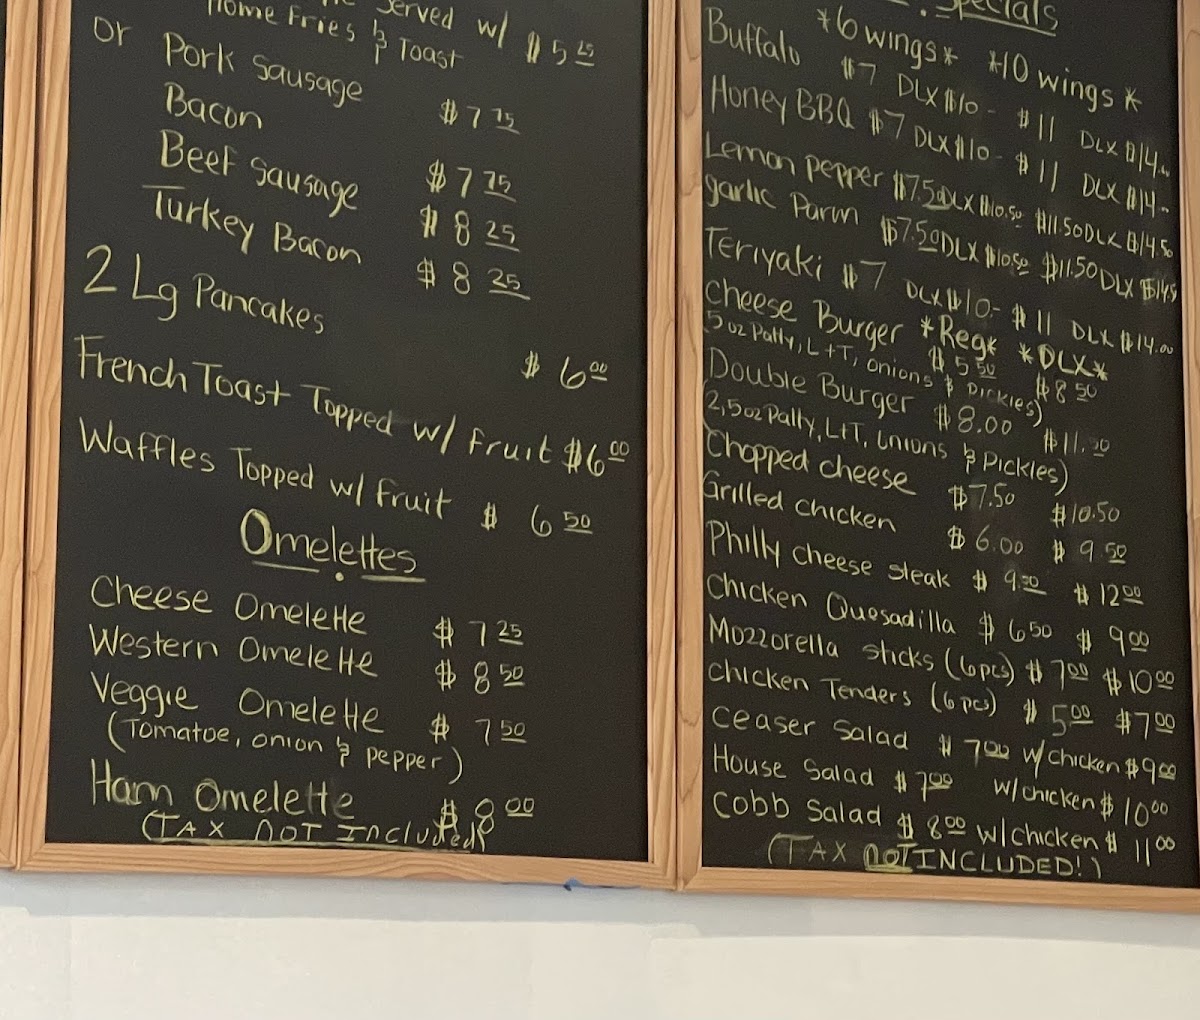 Served w/
Home Fries & Toast $5 25
or Pork Sausage $7 75
Bacon $7 75
Beef Sausage $8 25
Turkey Bacon $8 25
2 Lg Pancakes $6 00
French Toast Topped w/ fruit $6 00
Waffles Topped w/ fruit $6 50
Omelettes
Cheese Omelette $7 25
Western Omelette $8 50
Veggie Omelette $7 50
(Tomatoe, onion & pepper)
Ham Omelette $8 00
(TAX NOT Included)
Specials
*6 wings* *10 wings*
Buffalo $7 DLX $10- $11 DLX $14..
Honey BBQ $7 DLX $10- $11 DLX $14..
Lemon pepper $7.50 DLX $10.50 $11.50 DLX $14.50
garlic Parm $7.50 DLX $10.50 $11.50 DLX $14.50
Teriyaki $7 DLX $10.- $11 DLX $14.00
Cheese Burger *Reg* *DLX*
(5 oz Patty, L+T, onions & pickles) $5 50 $8 50
Double Burger $8.00 $11.50
(2,5oz Patty, L+T, onions & Pickles)
Chopped cheese $7.50 $10.50
Grilled chicken $6.00 $9.50
Philly cheese steak $9.50 $12 00
Chicken Quesadilla $6 50 $9 00
Mozzorella sticks (6pcs) $7 00 $10 00
Chicken Tenders (6pcs) $5 00 $7 00
Ceaser Salad $7 00 w/chicken $9 00
House Salad $7 00 w/chicken $10 00
Cobb Salad $8 00 w/chicken $11 00
(TAX NOT INCLUDED!)